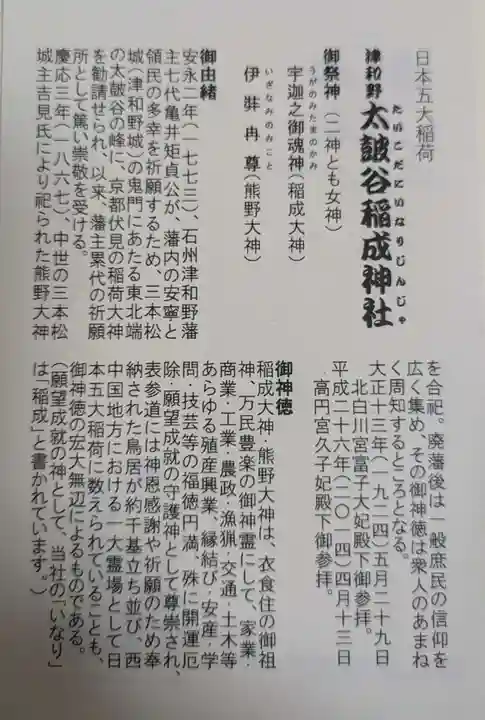 日本五大稲荷
津和野 太皷谷稲成神社
たいこだにいなりじんじゃ
御祭神（二神とも女神）
宇迦之御魂神（稲成大神）
うがのみたまのかみ
伊弉冉尊（熊野大神）
いざなみのみこと
御由緒
安永二年（一七七三）、石州津和野藩
主七代亀井矩貞公が、藩内の安寧と
領民の多幸を祈願するため、三本松
城（津和野城）の鬼門にあたる東北端
の太皷谷の峰に、京都伏見の稲荷大神
を勧請せられ、以来、藩主累代の祈願
所として篤い崇敬を受ける。
慶応三年（一八六七）、中世の三本松
城主吉見氏により祀られた熊野大神
を合祀。廃藩後は一般庶民の信仰を
広く集め、その御神徳は衆人のあまね
く周知するところとなる。
大正十三年（一九二四）五月二十九日
北白川宮富子大妃殿下御参拝。
平成二十六年（二〇一四）四月十三日
高円宮久子妃殿下御参拝。
御神徳
稲成大神・熊野大神は、衣食住の御祖
神、万民豊楽の御神霊にして、家業・
商業・工業・農政・漁猟・交通・土木等
あらゆる殖産興業、縁結び・安産・学
問・技芸等の福徳円満、殊に開運厄
除・願望成就の守護神として尊崇され、
表参道には神恩感謝や祈願のため奉
納された鳥居が約千基立ち並び、西
中国地方における一大霊場として日
本五大稲荷に数えられていることも、
御神徳の宏大無辺によるものである。
（願望成就の神として、当社の「いなり」
は「稲成」と書かれています。）